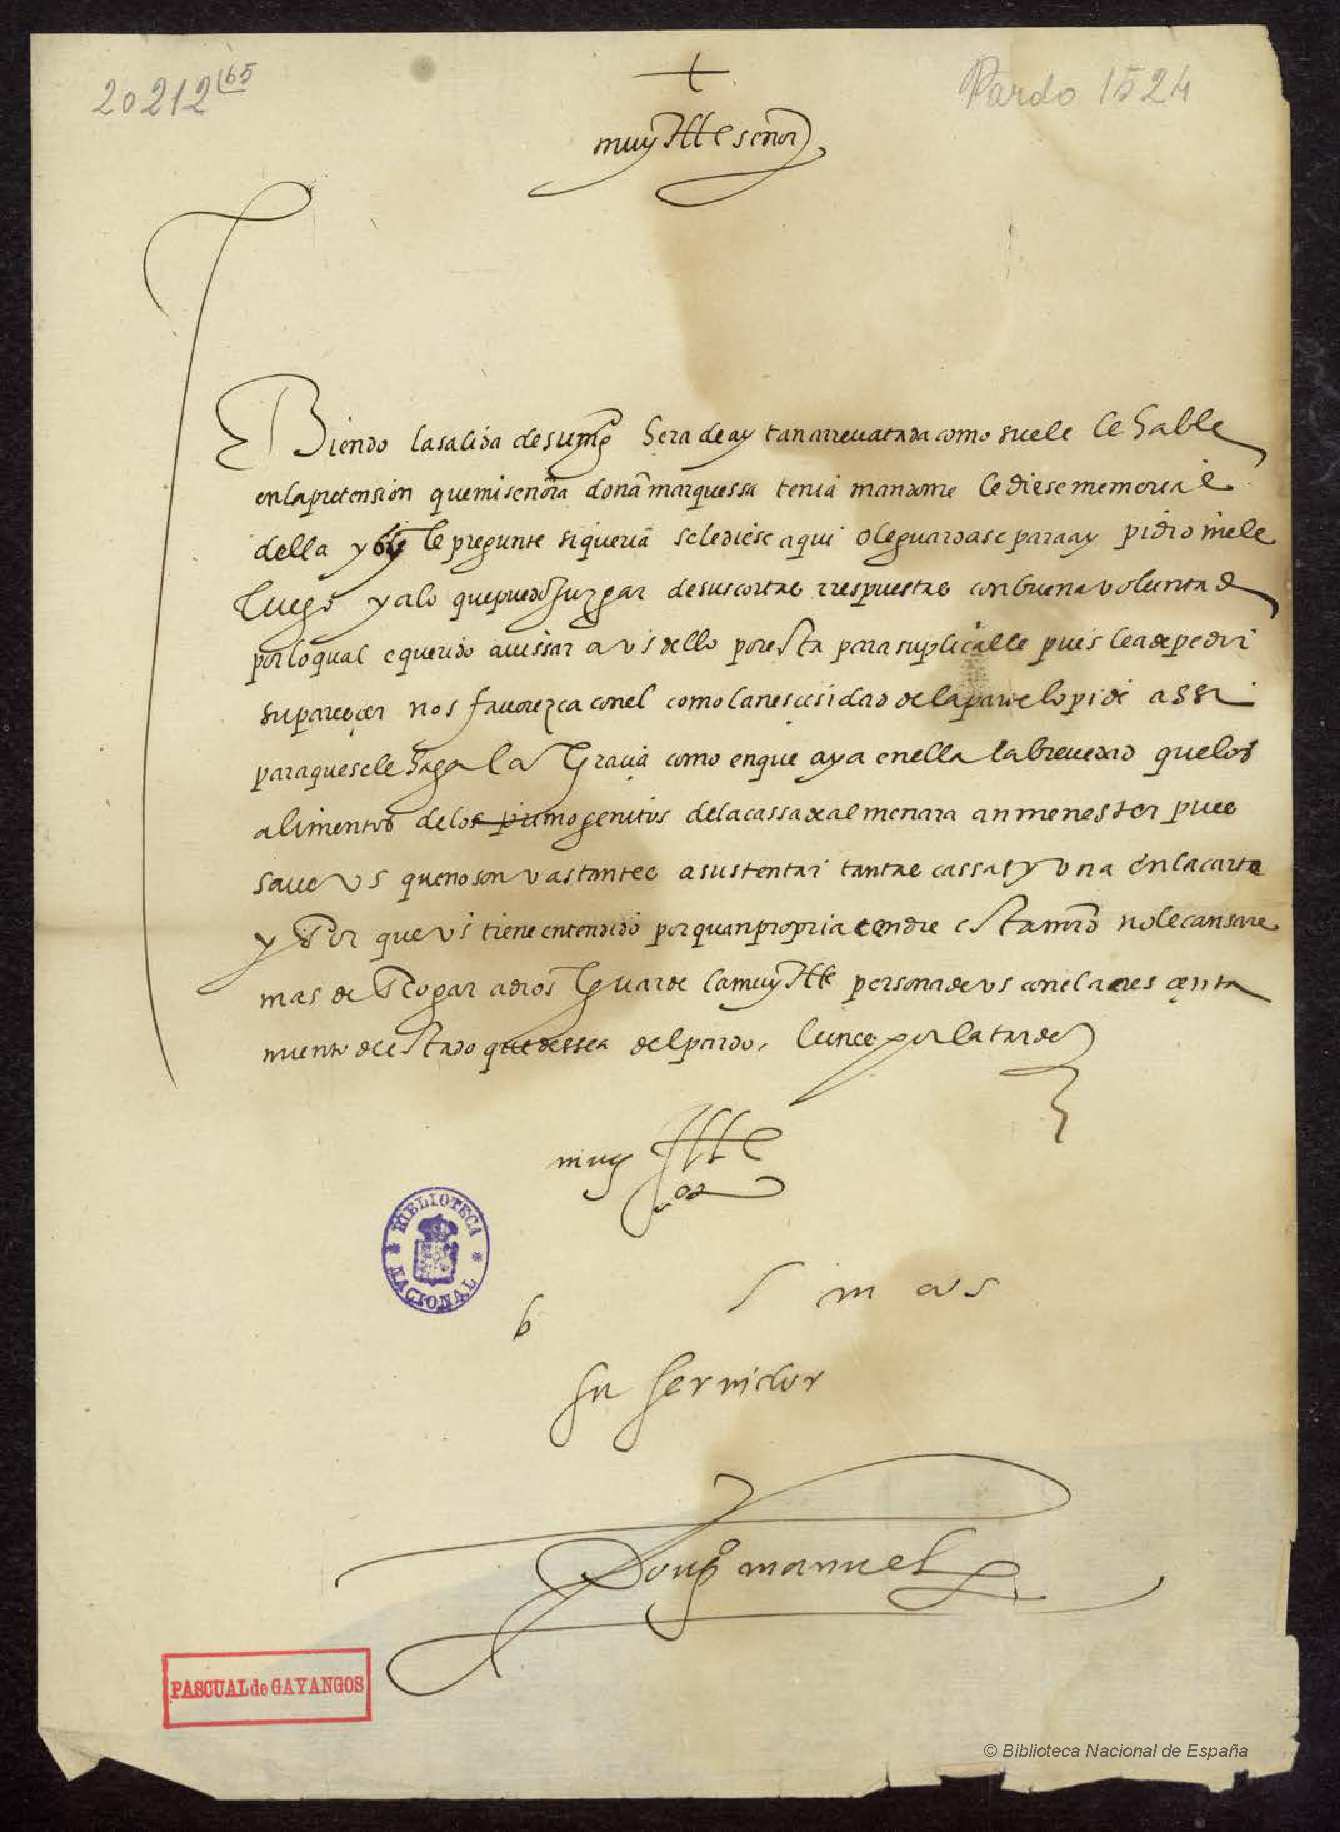 20212 65
Pardo 1524
+
muy Ille señor
Biendo la salida de su mgd sera de ay tan arrevatada como suele le hable
en la pretension que mi señora doña marquessa tenia mandome le diese memorial
della y le pregunte si queria se le diese aqui o le guardase para ay pidio mele
luego y a lo que puedo juzgar de sus cortas rrespuestas con buena voluntad
por lo qual e querido avissar a vs dello por esta para suplicalle pues le a de pedir
su parecer nos favorezca con el como la nescesidad de la parte lo pide assi
para que se le haga la gracia como en que aya en ella la brevedad que los
alimentos de los primogenitos de la cassa de almenara an menester pues
save vs que no son vastantes a sustentar tantas cassas y una en la carta
y por que vs tiene entendido por quan propria tendre esta md no le cansare
mas de Rogar a dios guarde la muy Ille persona de vs con el acres centa
miento de estado que dessea del pardo, lunes por la tarde
muy Ille
sor
b l m a vs
su servidor
Don g manuel
BIBLIOTECA NACIONAL
PASCUAL de GAYANGOS
© Biblioteca Nacional de España